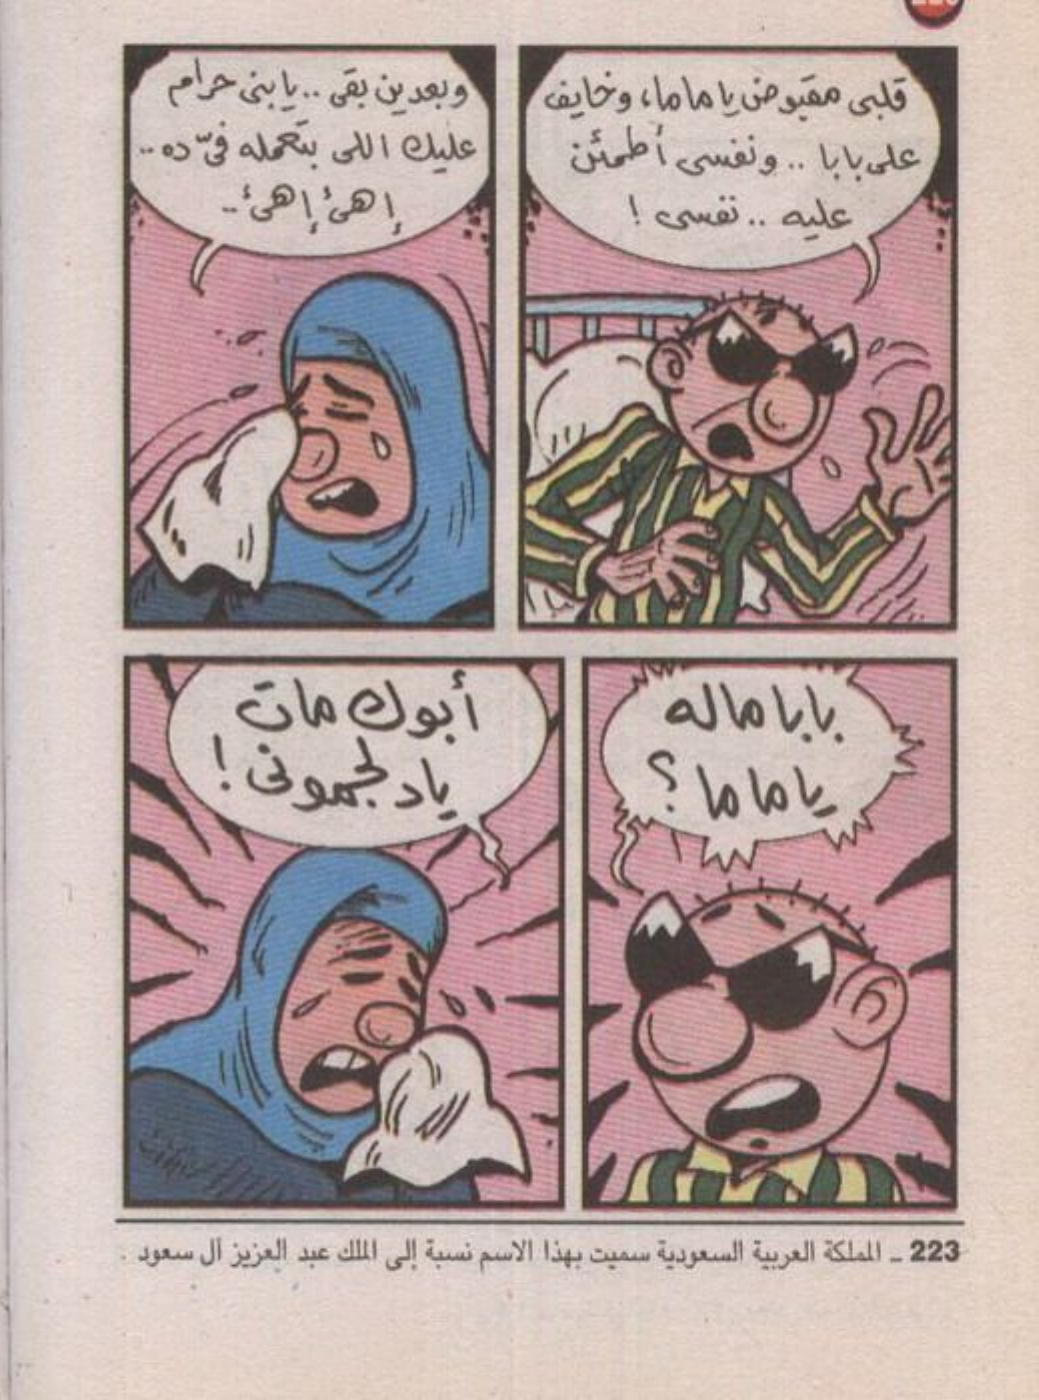 قلبى مقبوض يا ماما، وخايف
على بابا .. ونفسى أطمئن
عليه .. نفسى !
وبعدين بقى .. يا بنى حرام
عليك اللى بتعمله فىّ ده ..
إهئ إهئ ..
بابا ماله
يا ماما ؟
أبوك مات
ياد لجمونى !
223 ـ المملكة العربية السعودية سميت بهذا الاسم نسبة إلى الملك عبد العزيز آل سعود .